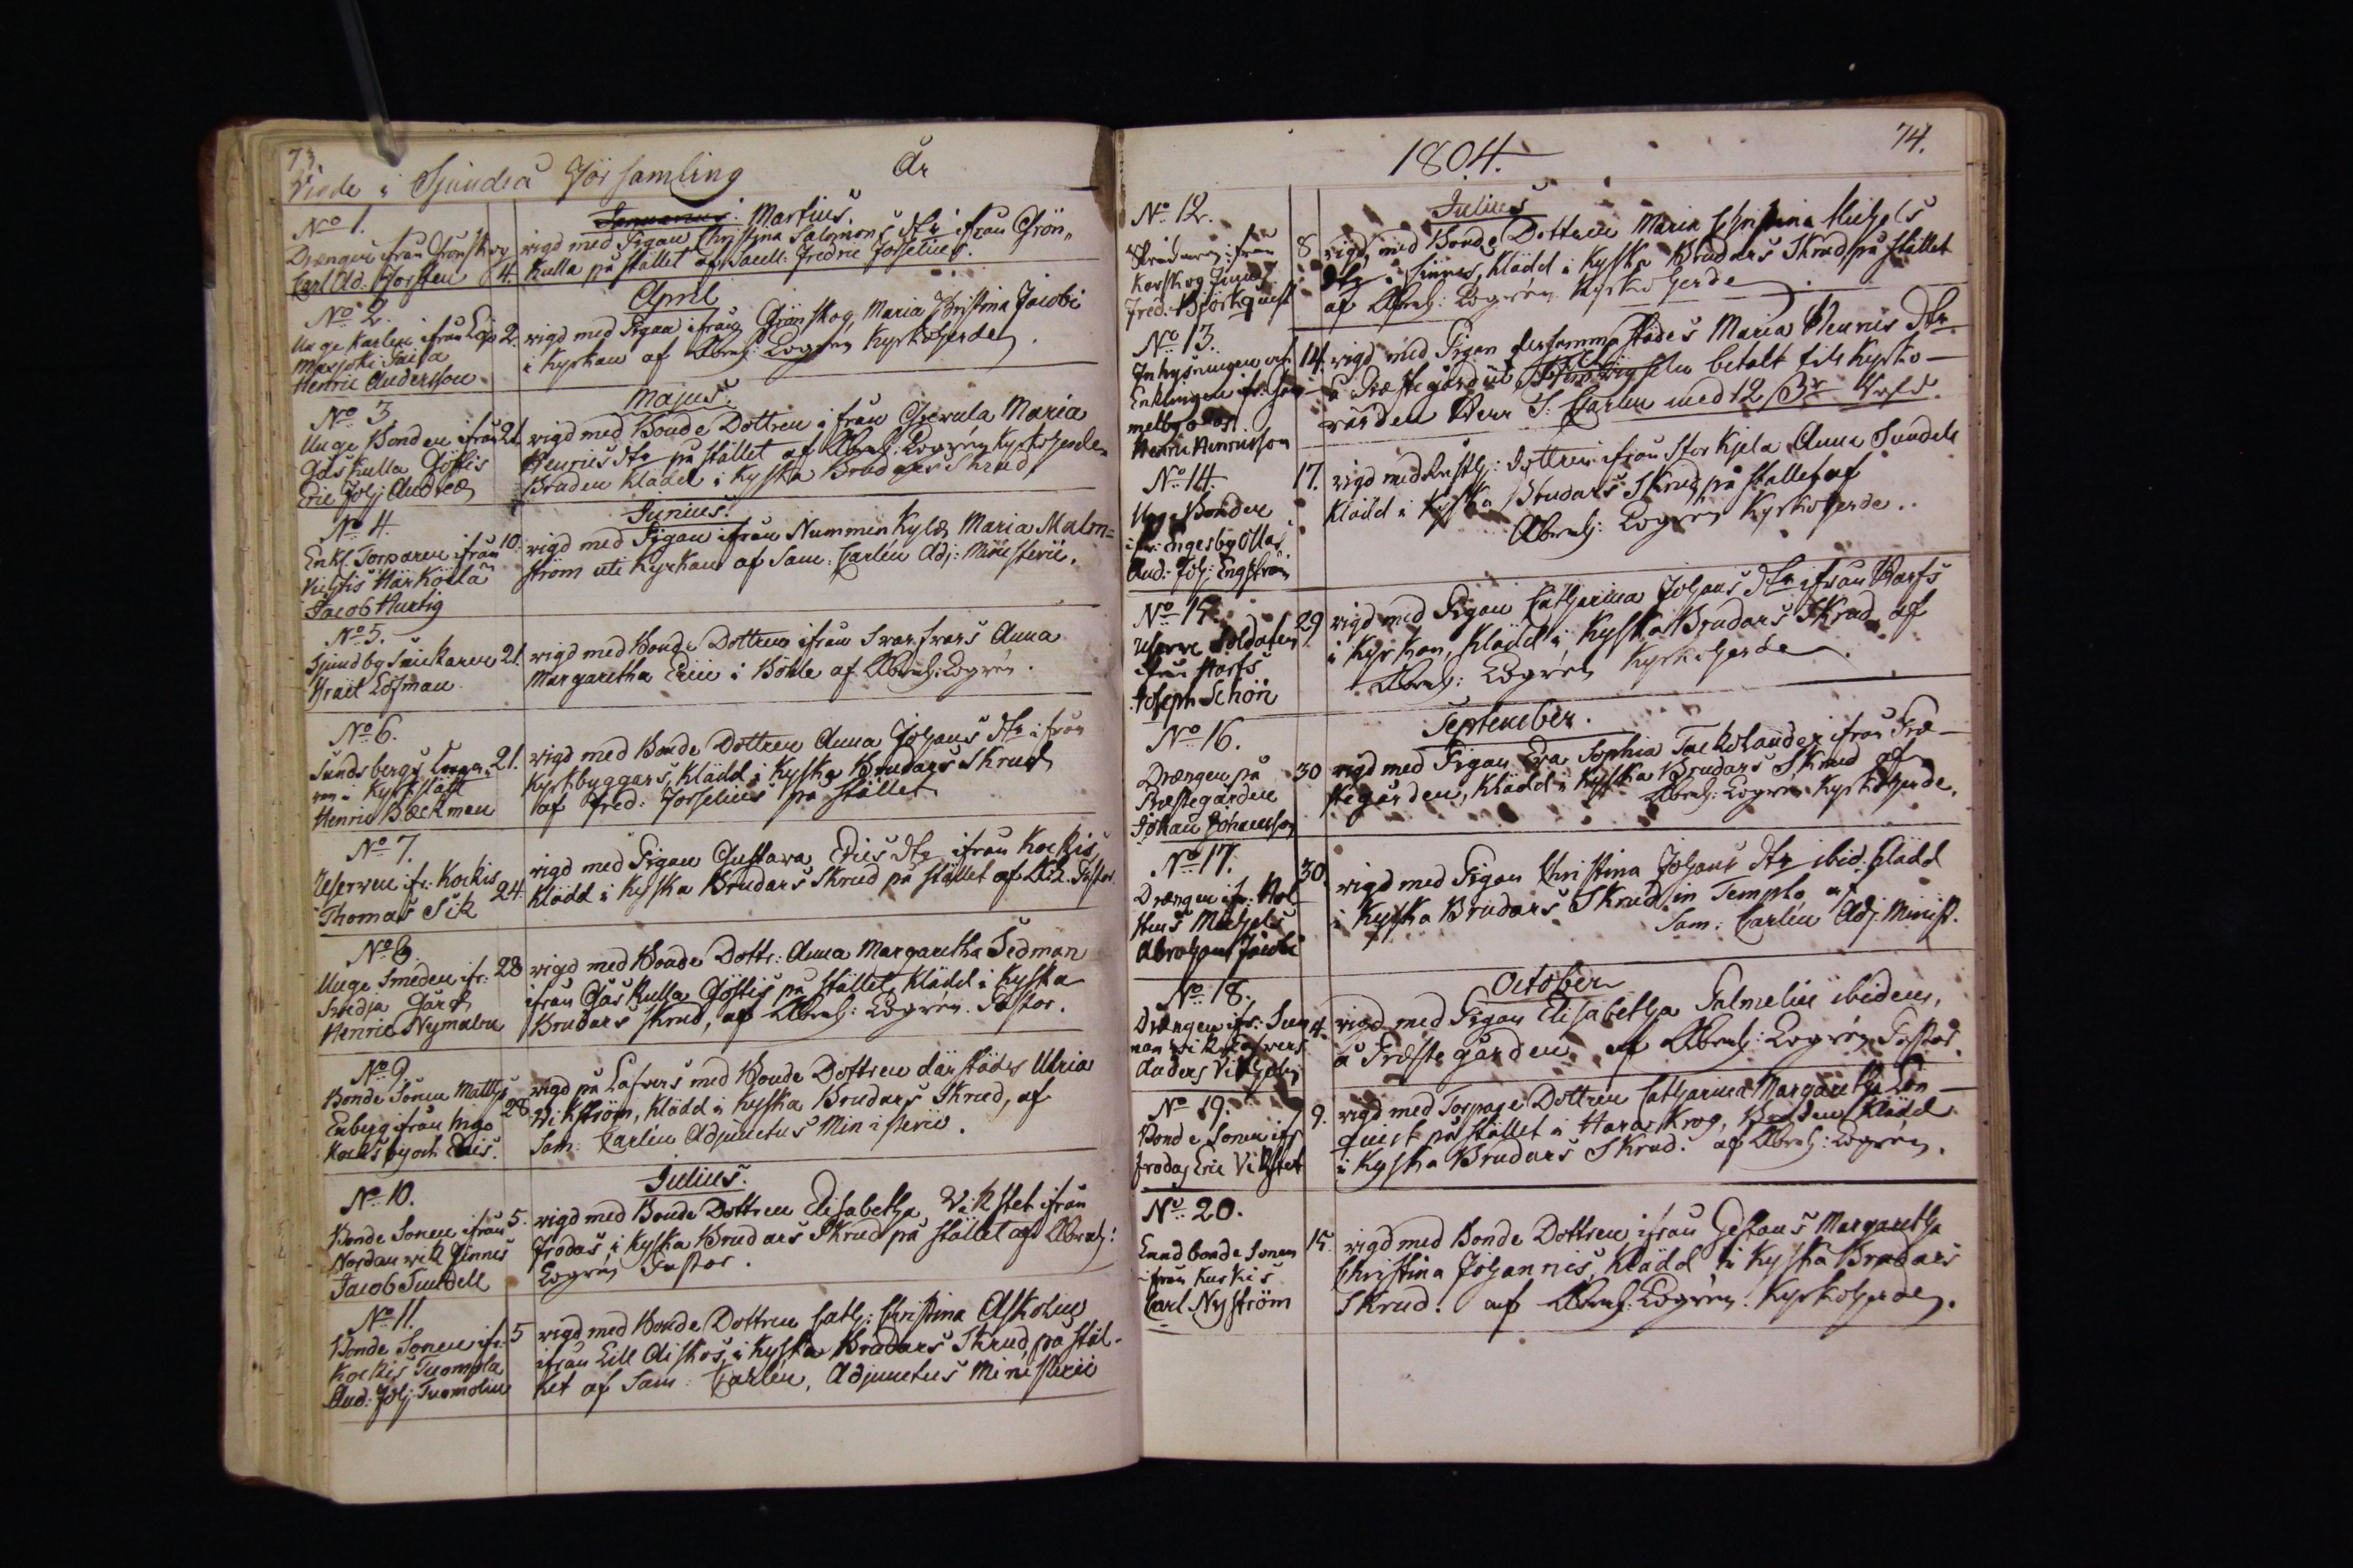 73.
Viede i Sjundeå Församling År
No 1.
Drängen från Grönskog
Carl Ad. Forsten 4.
Januarius. Martius.
vigd med Pigan Christina Salomons dtr ifrån Grön-
kulla på stället af Sacell: Fredric Forselius.
No 2.
Unge Karlen ifrån Lep 2.
Maxjoki Saila
Henric Andersson
April
vigd med Pigan ifrån Grönskog, Maria Christina Jacobi
i Kyrkan af Abrah: Logrén Kyrkoherde.
No 3.
Unge Bonden ifrån 21.
Gåskulla Göstis
Eric Joh: Andreæ
Majus.
vigd med Bonde Dottren ifrån Gerula Maria
Henricsdtr på stället af Abrah: Logrén Kyrkoherde.
Bruden klädd i Kyska Brudars Skrud.
No 4.
Enkl. Torparen ifrån 10.
Härköila
Jacob Hurtig
Junius.
vigd med Pigan ifrån Nummen Kylæ Maria Malm=
ström uti Kyrkan af Sam: Carlén Adj: Ministerii.
No 5.
Sjundby Snickaren 21.
Israel Löfman
vigd med Bonde Dottren ifrån Svarfvars Anna
Margaretha Erici i Böhle af Abrah: Logrén.
No 6.
Sundsbergs 21.
ren i Kyrkstad
Henric Beckman
vigd med Bonde Dottren Anna Johans dtr ifrån
Kyrkbyggars, klädd i Kyska Brudars Skrud
af Fred: Forselius på stället
No 7.
Reserven ifr: Kockis 24.
Thomas Sik
vigd med Pigan Gustava Erics dtr ifrån Kockis,
klädd i Kyska Brudars Skrud på stället af Pastor.
No 8.
Unge Smeden ifr: 28
Svidja Gård
Henric Nyman
vigd med Bonde Dottr: Anna Margaretha Sedman
ifrån Gåskulla Göstis på stället, klädd i Kyska
Brudars Skrud, af Abrah: Logrén. Pastor.
No 9.
Bonde Sonen Matths
Enberg ifrån Ingo 28.
Kocksby och Edis.
vigd på Lafvers med Bonde Dottren därstädes Ulrica
Wikström, klädd i Kyska Brudars Skrud, af
Sam: Carlén Adjunctus Ministerii.
No 10.
Bonde Sonen ifrån 5.
Nordanwik Finnes
Jacob Sundell
Julius.
vigd med Bonde Dottren Elisabetha Vikstet ifrån
Frodas i Kyska Brudars Skrud på stället af Abrah:
Logrén Pastor.
No 11.
Bonde Sonen ifr: 5
Kockis Tuompla
And: Joh: Tuomolin
vigd med Bonde Dottren Cath: Christina Askolin
ifrån Lill Aiskos, i Kyska Brudars Skrud, på stäl-
let af Sam: Carlén, Adjunctus Ministerii
1804. 74.
No 12.
Skrädaren ifrån 8
Korskog Junis
Fred: Björkquist
Julius
vigd med Bonde Dottren Maria Christina Michels
dtr i Finnes, klädd i Kyska Brudars Skrud, på stället
af Abrah: Logrén Kyrkoherde.
No 13.
Inhysningen och 14.
Enklingen fr: Gam-
melby Ollas
Henric Henricsson
vigd med Pigan dersammastädes Maria Henrics dtr
å Prästegården betalt till Kyrko-
värden Herr S: Carlén med 12 ß
No 14.
Unge Bonden 17.
ifr: Engesby Ollas
And: Joh: Engström
vigd med dottren ifrån Stor Kjela Anna Sundell
klädd i Kyska Brudars Skrud, på stället af
Abrah: Logrén Kyrkoherde.
No 15.
Reserve Soldaten 29
från Harfs
Joseph Schön
vigd med Pigan Catharina Johans dtr ifrån Harfs
i Kyrkan, klädd i Kyska Brudars Skrud af
Abrah: Logrén Kyrkoherde.
No 16.
Drängen på 30
Præstegården
Johan Johansson
September.
vigd med Pigan Eva Sophia Tackolander ifrån Præ-
stegården, klädd i Kyska Brudars Skrud af
Abrah: Logrén Kyrkoherde.
No 17. 30.
Drängen ifr: Hol-
stens Michels
Abraham Jacobi
vigd med Pigan Christina Johans dtr ibid. klädd
i Kyska Brudars Skrud in Templo af
Sam: Carlén Adj: Minist.
No 18.
Drängen ifr: Sun- 4.
nanwik Lafvers
Anders Vikholm
October
vigd med Pigan Elisabetha Palmelin ibidem,
å Præstegården af Abrah: Logrén Pastor.
No 19. 9.
Bonde Sonen ifr
Frodas Eric Vikstet
vigd med Torpare Dottren Catharina Margaretha Lön-
quist på stället i Haraskog, Bruden klädd
i Kyska Brudars Skrud. af Abrah: Logrén.
No 20.
bonde Sonen 15.
ifrån Kuskis
Carl Nyström
vigd med Bonde Dottren ifrån Gestans Margaretha
Christina Johannis, klädd i Kyska Brudars
Skrud. af Abrah: Logrén. Kyrkoherde.